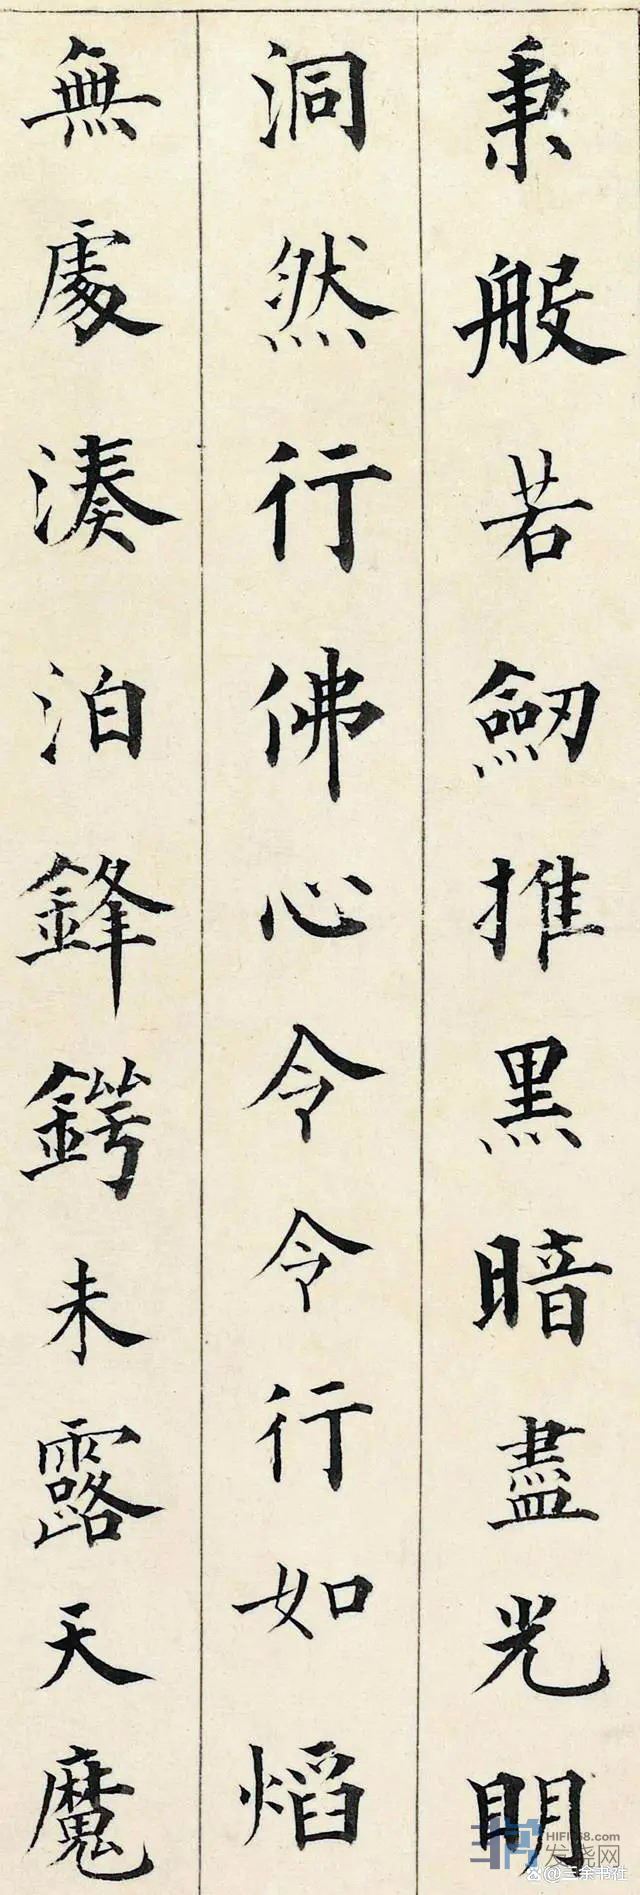 秉般若劒推黑暗盡光明
洞然行佛心令令行如熖
無處湊泊鋒鍔未露天魔
HIFI168.com
发烧网
@三余书社